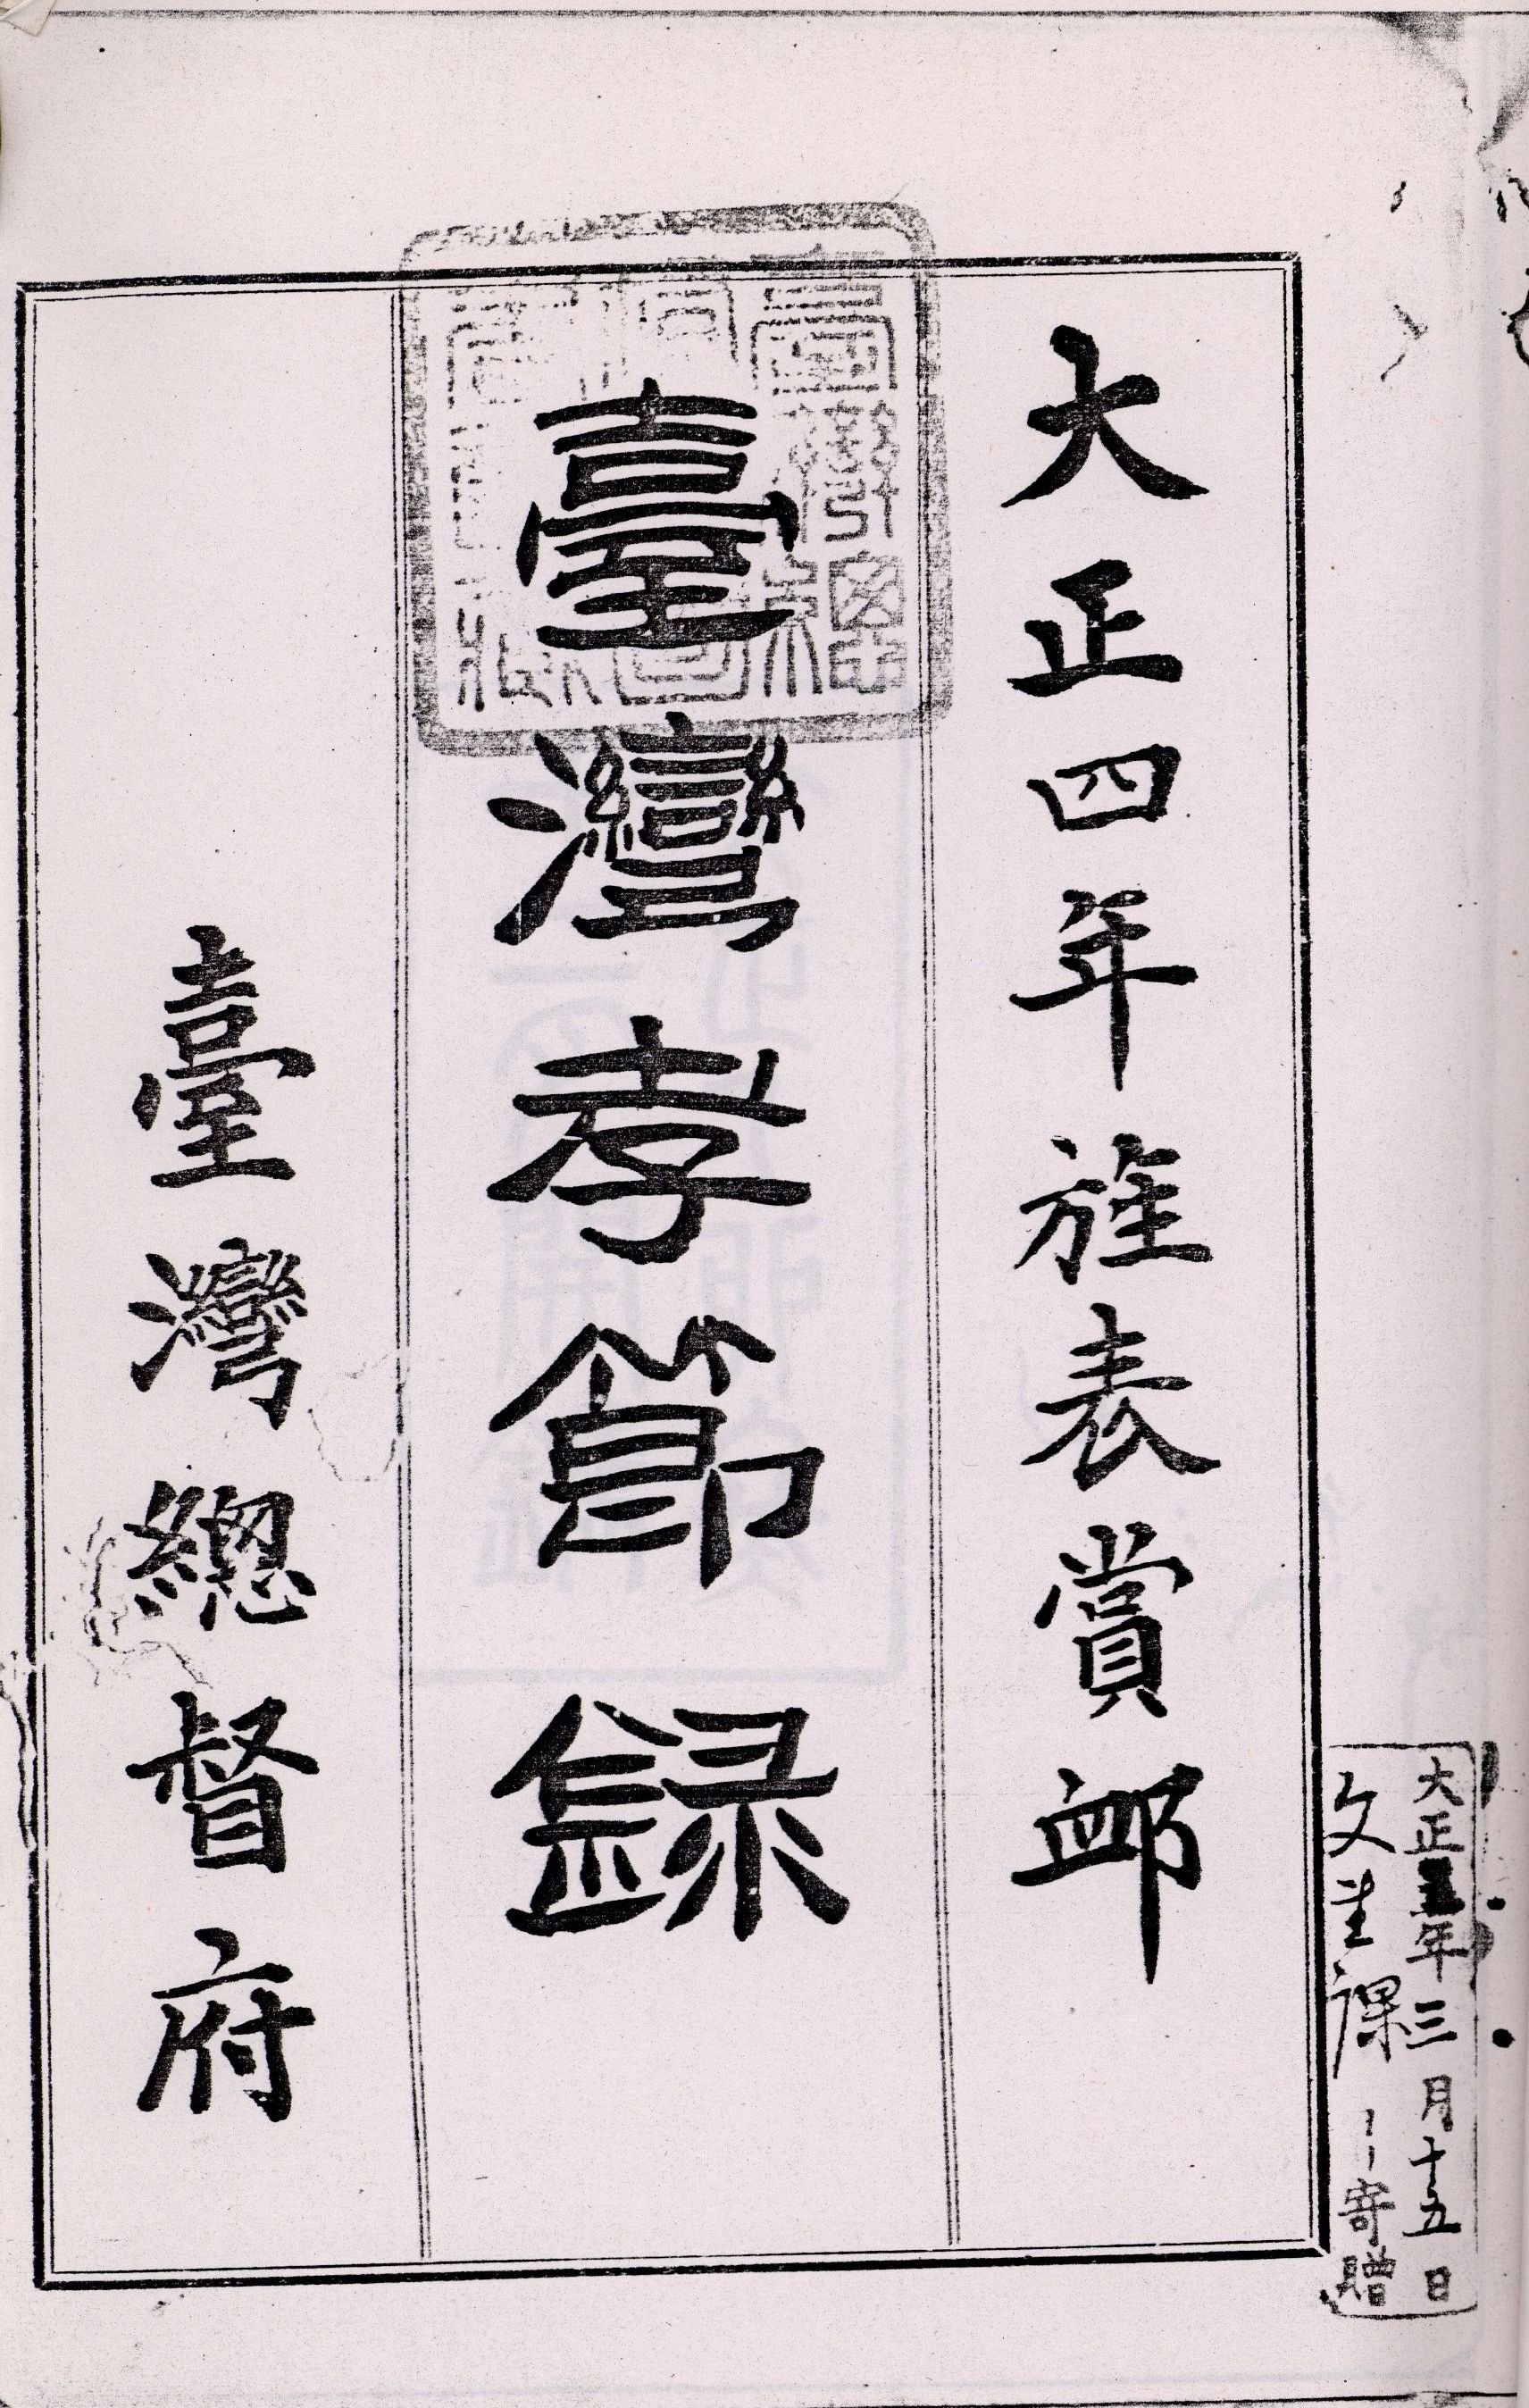 大正四年旌表賞卹
臺灣孝節錄
臺灣總督府
大正五年三月十五日
文書課寄贈